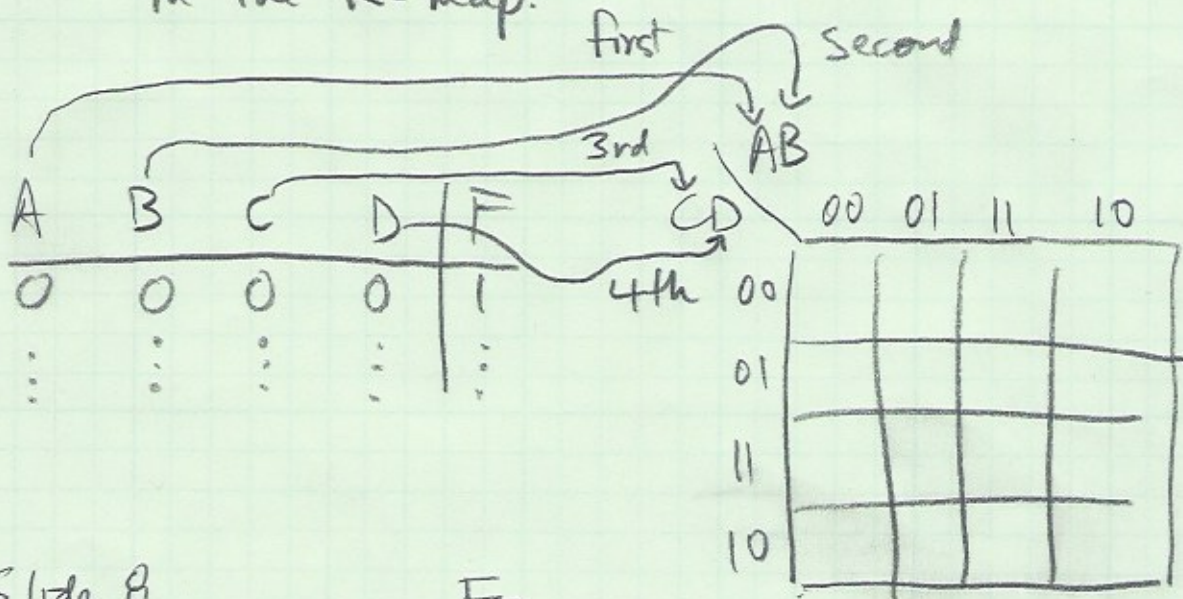 in the K-map.
first second
3rd AB
A B C D F CD 00 01 11 10
0 0 0 0 1 4th 00
01
11
10
Slide 8 F